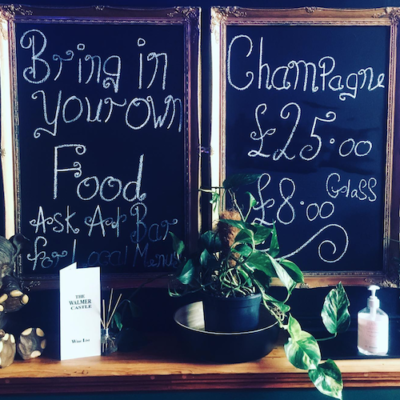 Bring in
Your own
Food
Ask At Bar
for Local Menus
Champagne
£25.00
£8.00 Glass
THE
WALMER
CASTLE
Wine List